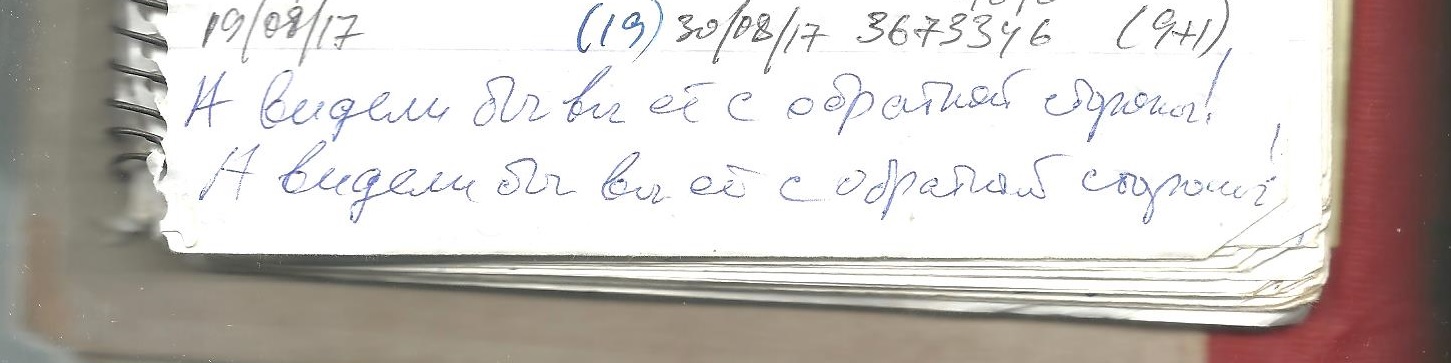 19/08/17 (19) 30/08/17 3673346 (9+1)
А видели бы вы её с обратной стороны!
А видели бы вы её с обратной стороны!